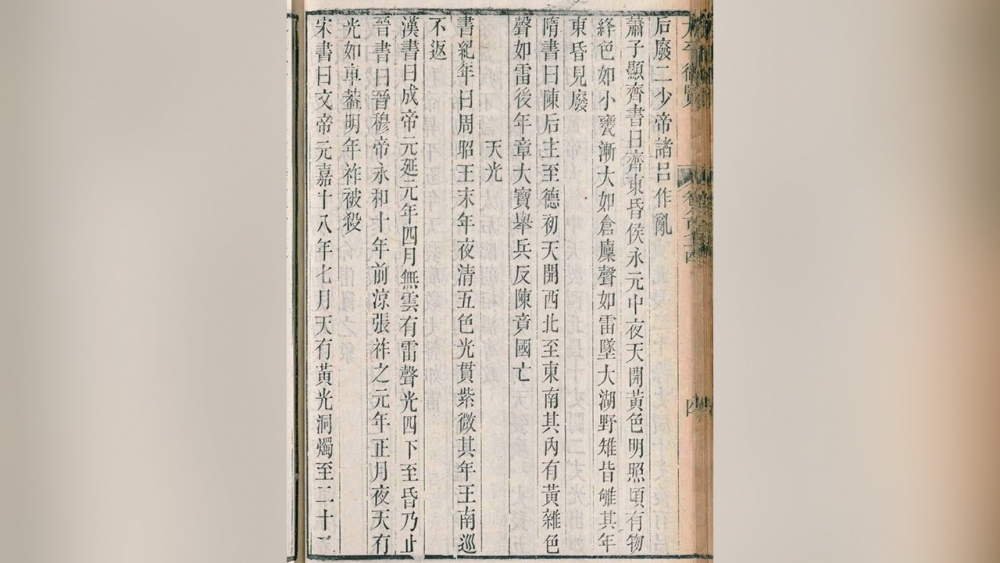 太平御覽
后廢二少帝諸呂作亂
蕭子顯齊書曰齊東昏侯永元中夜天開黃色明照頃有物
絳色如小甕漸大如倉廩聲如雷墜大湖野雉皆雊其年
東昏見廢
隋書曰陳后主至德初天開西北至東南其內有黃雜色
聲如雷後年章大寶舉兵反陳竟國亡
天光
書紀年曰周昭王末年夜清五色光貫紫微其年王南巡
不返
漢書曰成帝元延元年四月無雲有雷聲光四下至昏乃止
晉書曰晉穆帝永和十年前涼張祚之元年正月夜天有
光如車蓋明年祚被殺
宋書曰文帝元嘉十八年七月天有黃光洞燭至二十